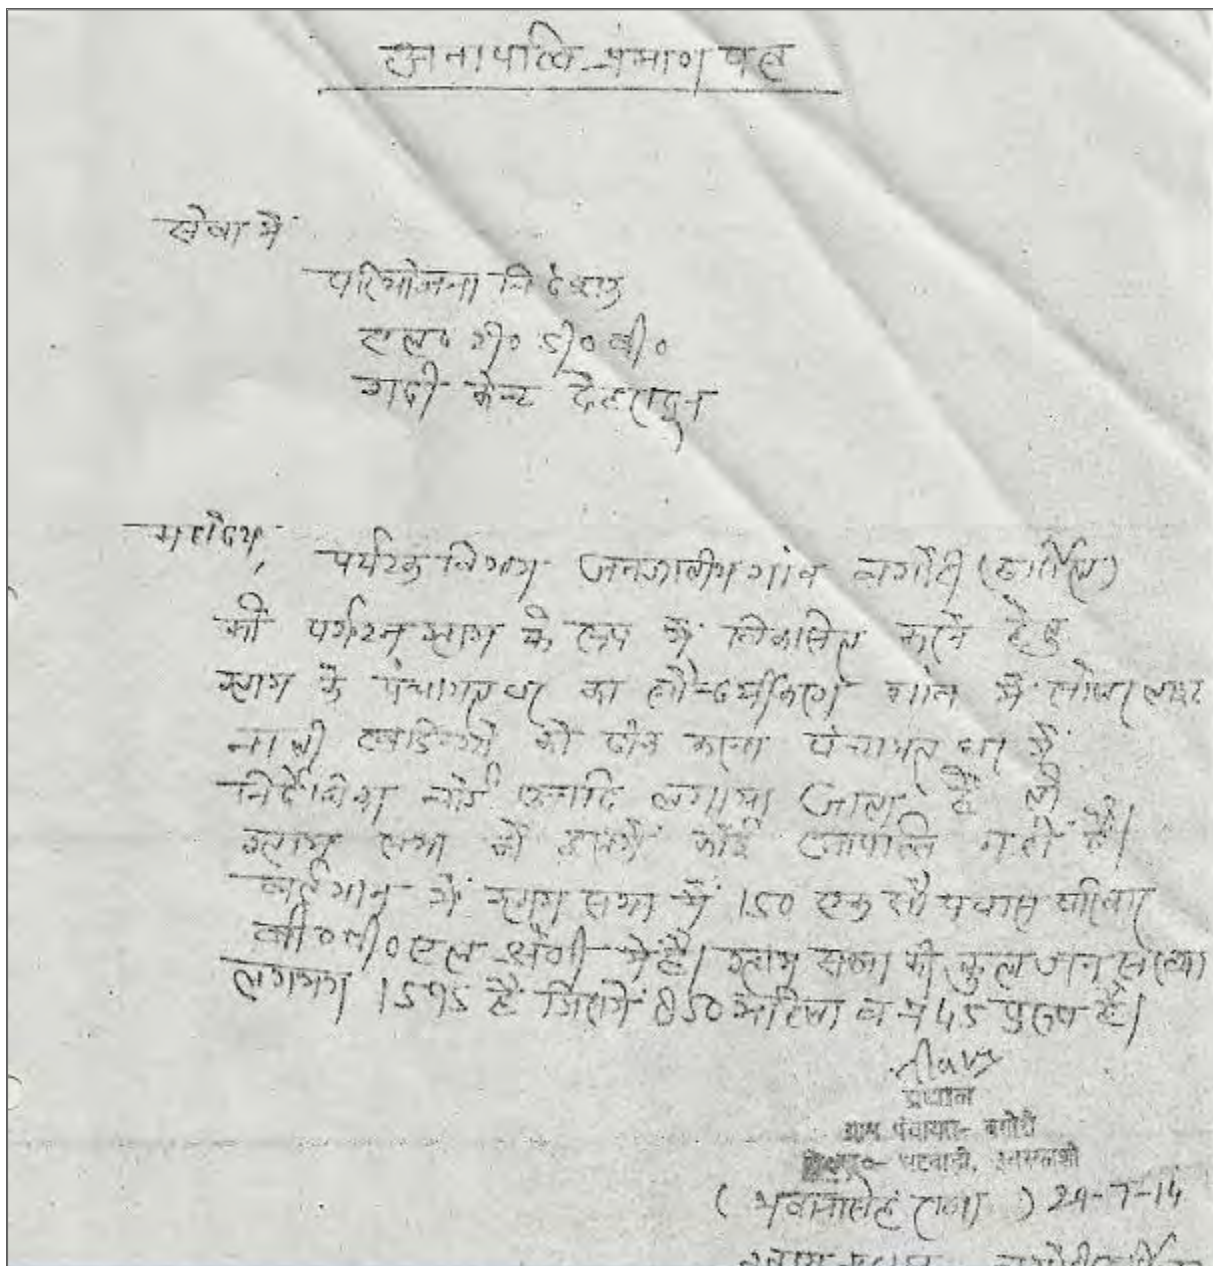 अनापत्ति प्रमाण पत्र
सेवा में
परियोजना निदेशक
एल० जी० डी० बी०
गढी केन्ट देहरादून
महोदय,
पर्यटक विभाग जनजातीय गांव बगोरी (हर्षिल)
को पर्यटन ग्राम के रूप में विकसित करने हेतु
ग्राम के पंचायत घर का सौन्दर्यीकरण गांव में सोलर लाइट
नाली को ठीक करना पंचायत घर में
निर्देशिका बोर्ड इत्यादि लगाया जाता है तो
ग्राम सभा को इसमें कोई आपत्ति नहीं है।
वर्तमान में ग्राम सभा में 150 एक सौ पचास परिवार
बी०पी०एल श्रेणी में है। ग्राम सभा की कुल जन संख्या
लगभग 1595 है जिसमें 850 महिला व 745 पुरुष है।
प्रधान
ग्राम पंचायत- बगोरी
भटवाडी, उत्तरकाशी
(भवान सिंह राणा) 29-7-14